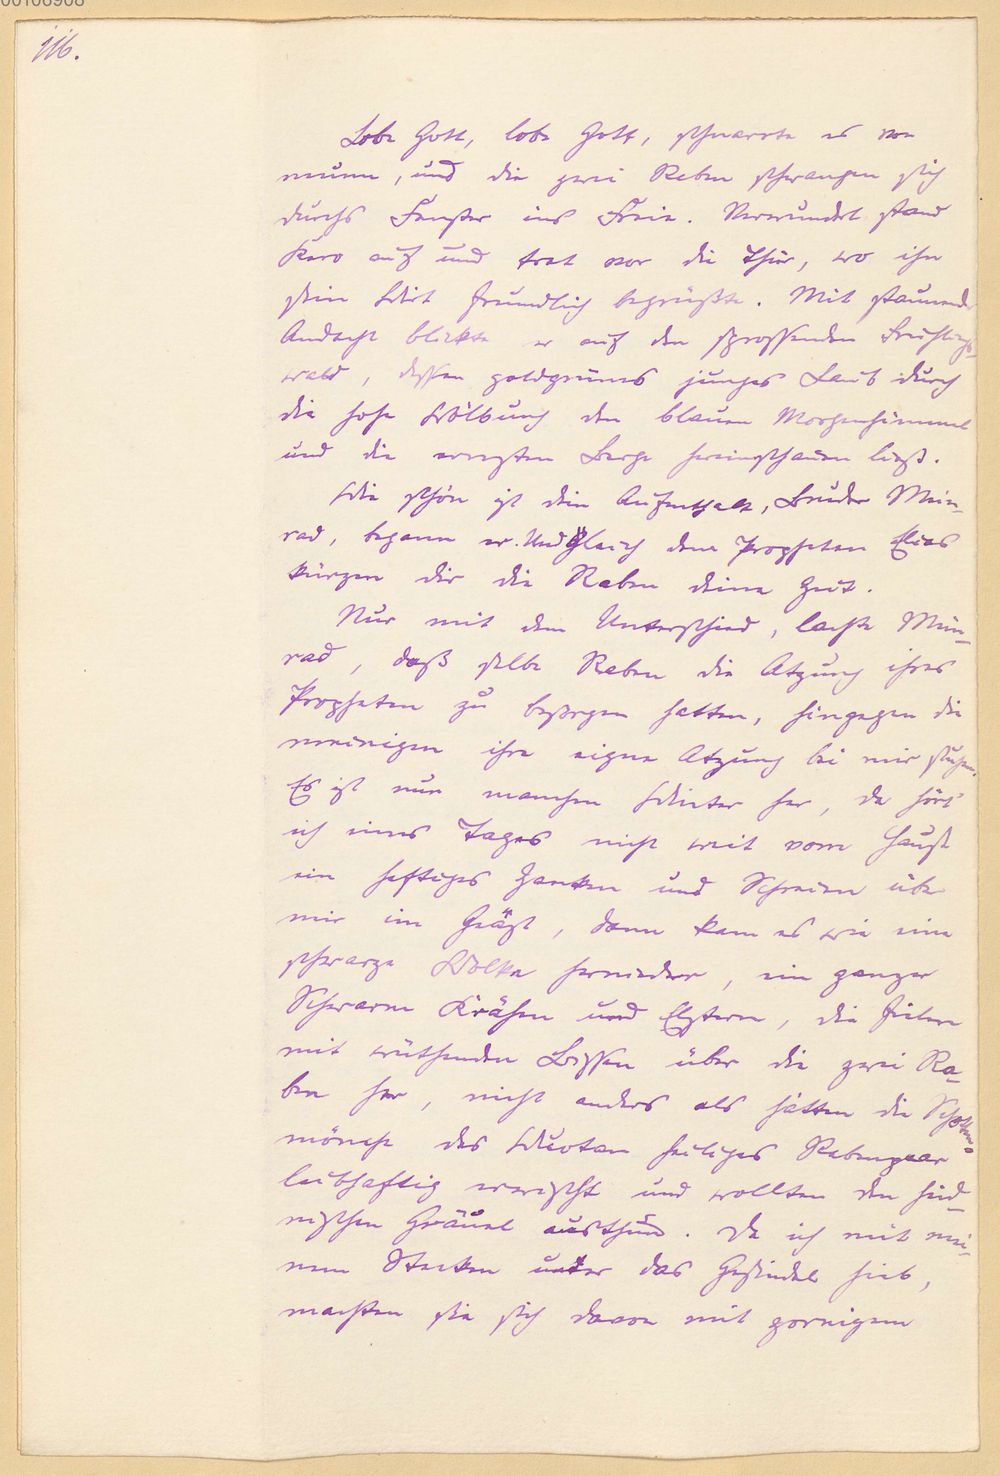 00106908
116.
Lobe Gott, lobe Gott, schnarrte es von
neuem, und die zwei Raben schwangen sich
durchs Fenster ins Freie. Verwundert stand
Karo auf und trat vor die Thür, wo ihn
sein Wirt freundlich begrüßte. Mit staunender
Andacht blickte er auf den sprossenden Frühlings-
wald, dessen goldgrünes junges Laub durch
die hohe Wölbung den blauen Morgenhimmel
und die ernsten Berge hereinschauen ließ.
Wie schön ist dein Aufenthalt, Bruder Mein-
rad, begann er. Und gleich dem Propheten Elias
kürzen dir die Raben deine Zeit.
Nur mit dem Unterschied, lachte Mein-
rad, daß selbe Raben die Atzung ihres
Propheten zu besorgen hatten, hingegen die
meinigen ihre eigne Atzung bei mir suchen.
Es ist nun manchen Winter her, da hört'
ich eines Tages nicht weit vom Hause
ein heftiges Zanken und Schreien über
mir im Geäst, dann kam es wie eine
schwarze Wolke hernieder, ein ganzer
Schwarm Krähen und Elstern, die fielen
mit wüthenden Bissen über die zwei Ra-
ben her, nicht anders als hätten die Schotten-
mönche des Wuotan heiliges Rabenpaar
leibhaftig erwischt und wollten den heid-
nischen Gräuel austhun. Da ich mit mei-
nem Stecken unter das Gesindel hieb,
machten sie sich davon mit zornigem